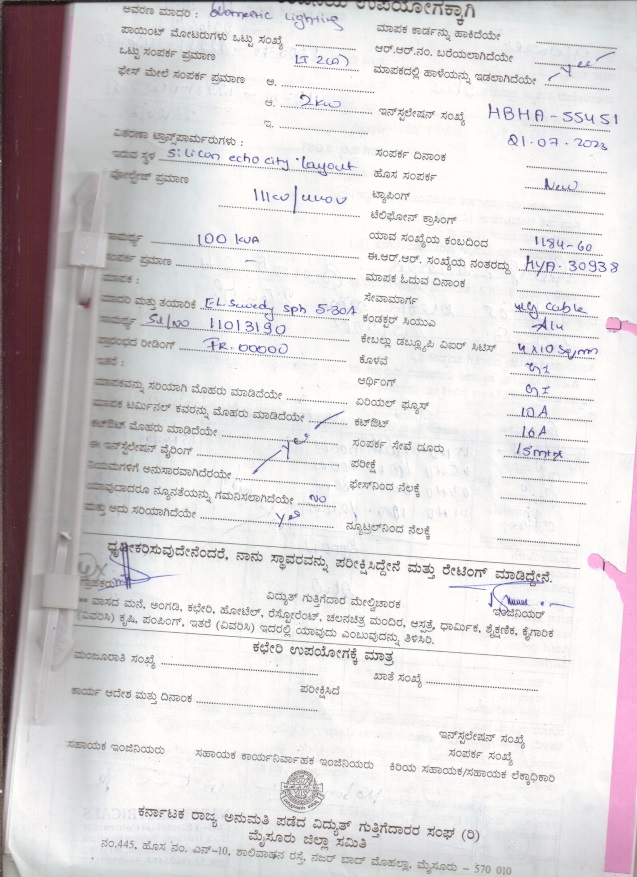 ಉಪಯೋಗಕ್ಕಾಗಿ
ಆವರಣ ಮಾದರಿ : Domestic Lighting
ಮಾಪಕ ಕಾರ್ಡನ್ನು ಹಾಕಿದೆಯೇ
ಪಾಯಿಂಟ್ ಮೋಟರುಗಳು ಒಟ್ಟು ಸಂಖ್ಯೆ
ಆರ್.ಆರ್.ನಂ. ಬರೆಯಲಾಗಿದೆಯೇ
ಒಟ್ಟು ಸಂಪರ್ಕ ಪ್ರಮಾಣ LT 2(a)
ಮಾಪಕದಲ್ಲಿ ಹಾಳೆಯನ್ನು ಇಡಲಾಗಿದೆಯೇ yes
ಫೇಸ್ ಮೇಲೆ ಸಂಪರ್ಕ ಪ್ರಮಾಣ ಅ.
ಆ. 2kw
ಇನ್‌ಸ್ಟಲೇಷನ್ ಸಂಖ್ಯೆ HBHA-55451
ಇ.
ವಿತರಣಾ ಟ್ರಾನ್ಸ್‌ಪಾರ್ಮರುಗಳು :
ಸಂಪರ್ಕ ದಿನಾಂಕ 21.07.2023
ಇರುವ ಸ್ಥಳ silicon echo city layout
ಹೊಸ ಸಂಪರ್ಕ New
ವೋಲ್ಟೇಜ್ ಪ್ರಮಾಣ
ಟ್ಯಾಪಿಂಗ್
ಟೆಲಿಫೋನ್ ಕ್ರಾಸಿಂಗ್
ಸಾಮರ್ಥ್ಯ 100 kVA
ಯಾವ ಸಂಖ್ಯೆಯ ಕಂಬದಿಂದ 1184-60
ಸಂಪರ್ಕ ಪ್ರಮಾಣ -
ಈ.ಆರ್.ಆರ್. ಸಂಖ್ಯೆಯ ನಂತರದ್ದು HYA-30938
ಮಾಪಕ :
ಮಾಪಕ ಓದುವ ದಿನಾಂಕ
ಮಾದರಿ ಮತ್ತು ತಯಾರಿಕೆ sph 5-30A
ಸೇವಾಮಾರ್ಗ ug cable
ಸಾಮರ್ಥ್ಯ Sl/no 11013190
ಕಂಡಕ್ಟರ್ ಸಿಯುಎ Alu
ಪ್ರಾರಂಭದ ರೀಡಿಂಗ್ FR. 00000
ಕೇಬಲ್ಲು ಡಬ್ಲ್ಯೂಪಿ ವಿಐರ್ ಸಿಟಿಸ್ 4x10 Sqmm
ಇತರೆ :
ಕೊಳವೆ GI
ಆರ್ಥಿಂಗ್ GI
ಮಾಪಕವನ್ನು ಸರಿಯಾಗಿ ಮೊಹರು ಮಾಡಿದೆಯೇ
ಏರಿಯಲ್ ಫ್ಯೂಸ್ 10A
ಮಾಪಕ ಟರ್ಮಿನಲ್ ಕವರನ್ನು ಮೊಹರು ಮಾಡಿದೆಯೇ
ಕಟ್‌ಔಟ್ 16A
ಕಟ್‌ಔಟ್ ಮೊಹರು ಮಾಡಿದೆಯೇ yes
ಸಂಪರ್ಕ ಸೇವೆ ದೂರು 15mtr
ಈ ಇನ್‌ಸ್ಟೆಲೇಷನ್ ವೈರಿಂಗ್
ಪರೀಕ್ಷೆ
ನಿಯಮಗಳಿಗೆ ಅನುಸಾರವಾಗಿದೆರಯೇ
ಫೇಸ್‌ನಿಂದ ನೆಲಕ್ಕೆ
ಯಾವುದಾದರೂ ನ್ಯೂನತೆಯನ್ನು ಗಮನಿಸಲಾಗಿದೆಯೇ NO
ಮತ್ತು ಅದು ಸರಿಯಾಗಿದೆಯೇ yes
ನ್ಯೂಟ್ರಲ್‌ನಿಂದ ನೆಲಕ್ಕೆ
ಧೃಢೀಕರಿಸುವುದೇನೆಂದರೆ, ನಾನು ಸ್ಥಾವರವನ್ನು ಪರೀಕ್ಷಿಸಿದ್ದೇನೆ ಮತ್ತು ರೇಟಿಂಗ್ ಮಾಡಿದ್ದೇನೆ.
ವಿದ್ಯುತ್ ಗುತ್ತಿಗೆದಾರ ಮೇಲ್ವಿಚಾರಕ
ಇಂಜಿನಿಯರ್
** ವಾಸದ ಮನೆ, ಅಂಗಡಿ, ಕಛೇರಿ, ಹೋಟೆಲ್, ರೆಸ್ಟೋರೆಂಟ್, ಚಲನಚಿತ್ರ ಮಂದಿರ, ಆಸ್ಪತ್ರೆ, ಧಾರ್ಮಿಕ, ಶೈಕ್ಷಣಿಕ, ಕೈಗಾರಿಕ
(ವಿವರಿಸಿ) ಕೃಷಿ, ಪಂಪಿಂಗ್, ಇತರೆ (ವಿವರಿಸಿ) ಇದರಲ್ಲಿ ಯಾವುದು ಎಂಬುವುದನ್ನು ತಿಳಿಸಿರಿ.
ಕಛೇರಿ ಉಪಯೋಗಕ್ಕೆ ಮಾತ್ರ
ಮಂಜೂರಾತಿ ಸಂಖ್ಯೆ
ಖಾತೆ ಸಂಖ್ಯೆ
ಕಾರ್ಯ ಆದೇಶ ಮತ್ತು ದಿನಾಂಕ
ಪರೀಕ್ಷಿಸಿದೆ
ಇನ್‌ಸ್ಟಲೇಷನ್ ಸಂಖ್ಯೆ
ಸಂಪರ್ಕ ಸಂಖ್ಯೆ
ಸಹಾಯಕ ಇಂಜಿನಿಯರು ಸಹಾಯಕ ಕಾರ್ಯನಿರ್ವಾಹಕ ಇಂಜಿನಿಯರು ಕಿರಿಯ ಸಹಾಯಕ/ಸಹಾಯಕ ಲೆಕ್ಕಾಧಿಕಾರಿ
ಕರ್ನಾಟಕ ರಾಜ್ಯ ಅನುಮತಿ ಪಡೆದ ವಿದ್ಯುತ್ ಗುತ್ತಿಗೆದಾರರ ಸಂಘ (ರಿ)
ಮೈಸೂರು ಜಿಲ್ಲಾ ಸಮಿತಿ
ನಂ.445, ಹೊಸ ನಂ. ಎನ್-10, ಶಾಲಿವಾಹನ ರಸ್ತೆ, ನಜರ್ ಬಾದ್ ಮೊಹಲ್ಲಾ, ಮೈಸೂರು - 570 010